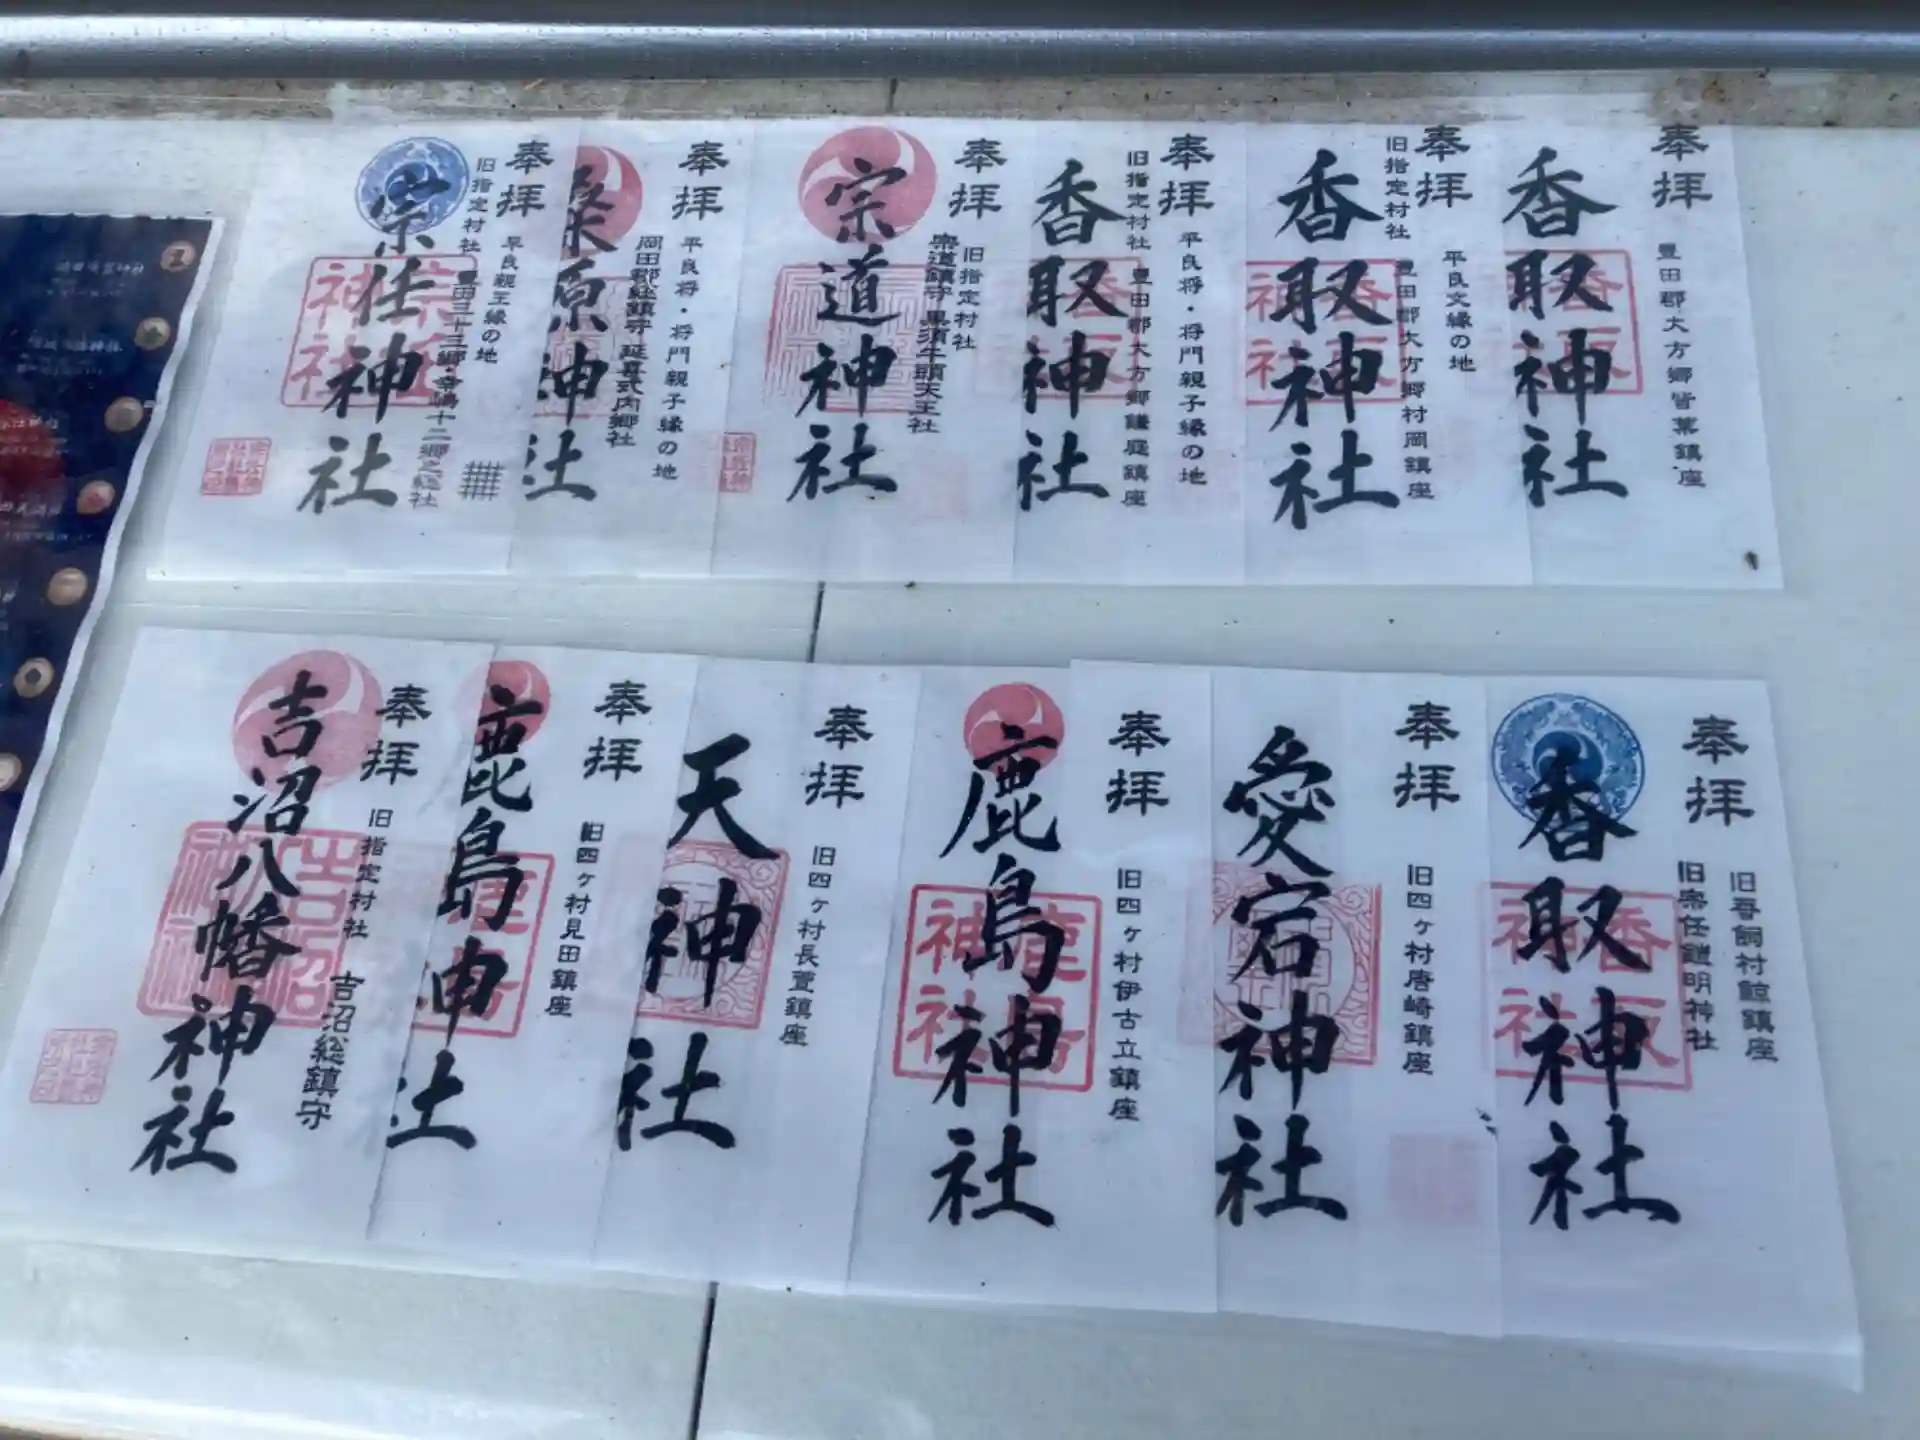 奉拝
豊田郡大方郷皆葉鎮座
香取神社
奉拝
平良文縁の地
旧指定村社 豊田郡大方郷村岡鎮座
香取神社
奉拝
平良将・将門親子縁の地
旧指定村社 豊田郡大方郷鎌庭鎮座
香取神社
奉拝
旧指定村社
宗道鎮守
宗道神社
奉拝
平良将・将門親子縁の地
岡田郡総鎮守 延喜式内郷社
桑原神社
奉拝 平良親王縁の地
旧指定村社 豊田三十三郷・幸嶋十二郷之総社
宗任神社
奉拝
香取神社
奉拝
旧四ヶ村唐崎鎮座
愛宕神社
奉拝
旧四ヶ村伊古立鎮座
鹿島神社
奉拝
旧四ヶ村長萱鎮座
天神社
奉拝
旧四ヶ村見田鎮座
鹿島神社
奉拝
旧指定村社 吉沼総鎮守
吉沼八幡神社